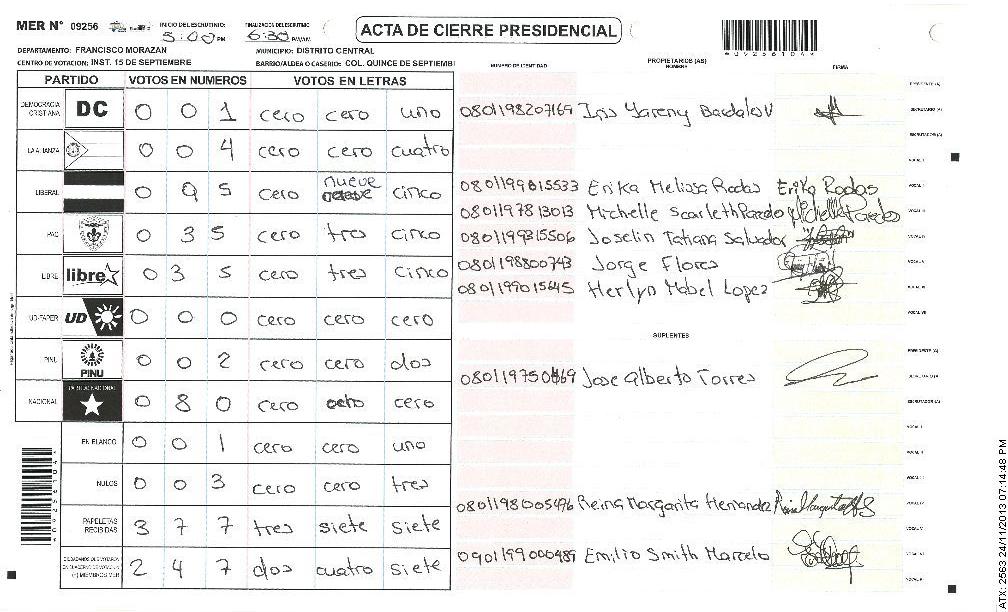 MER N° 09256 INICIO DEL ESCRUTINIO: 5:00 PM FINALIZACION DEL ESCRUTINIO 6:30 PM/AM ACTA DE CIERRE PRESIDENCIAL
DEPARTAMENTO: FRANCISCO MORAZAN MUNICIPIO: DISTRITO CENTRAL
CENTRO DE VOTACION: INST. 15 DE SEPTIEMBRE BARRIO/ALDEA O CASERIO: COL. QUINCE DE SEPTIEMBI
NUMERO DE IDENTIDAD PROPIETARIOS (AS) NOMBRE FIRMA
PARTIDO VOTOS EN NUMEROS VOTOS EN LETRAS
DEMOCRACIA CRISTIANA DC 0 0 1 cero cero uno
LA ALIANZA 0 0 4 cero cero cuatro
LIBERAL 0 9 5 cero nueve cinco
PAC 0 3 5 cero tres cinco
LIBRE libre 0 3 5 cero tres cinco
UD-FAPER UD 0 0 0 cero cero cero
PINU PINU 0 0 2 cero cero dos
NACIONAL PARTIDO NACIONAL 0 8 0 cero ocho cero
EN BLANCO 0 0 1 cero cero uno
NULOS 0 0 3 cero cero tres
PAPELETAS RECIBIDAS 3 7 7 tres siete siete
2 4 7 dos cuatro siete
0801198207169 Iris Yareny Bardalov
0801199015533 Erika Melissa Rodas Erika Rodas
0801197813013 Michelle Scarleth Paredo
0801199315506 Joselin Tatiana Salvador
0801198800743 Jorge Flores
0801199015645 Herlyn Mabel Lopez
SUPLENTES
Jose Alberto Torres
08011981005496 Reina Margarita Hernandez
0901199000487 Emilio Smith Marcelo
PRESIDENTE (A)
SECRETARIO (A)
ESCRUTADOR (A)
ATX: 2563 24/11/2013 07:14:48 PM